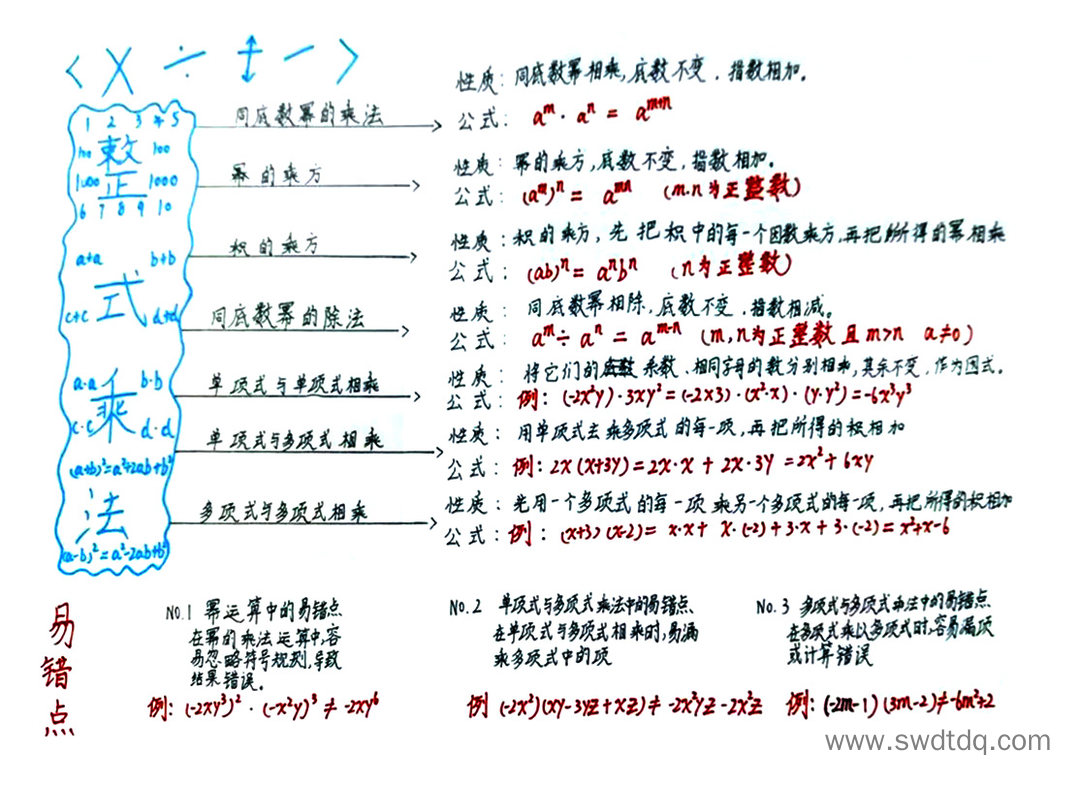 < × ÷ + − >
1 2 3 4 5
100 整 100
1000 1000
6 7 8 9 10
a+a b+b
式
c+c d+d
a·a b·b
乘
c·c d·d
(a+b)²=a²+2ab+b²
法
(a-b)²=a²-2ab+b²
同底数幂的乘法
性质：同底数幂相乘，底数不变，指数相加。
公式：aᵐ·aⁿ = aᵐ⁺ⁿ
幂的乘方
性质：幂的乘方，底数不变，指数相加。
公式：(aᵐ)ⁿ = aᵐⁿ (m·n为正整数)
积的乘方
性质：积的乘方，先把积中的每一个因数乘方，再把所得的幂相乘
公式：(ab)ⁿ = aⁿbⁿ (n为正整数)
同底数幂的除法
性质：同底数幂相除，底数不变，指数相减。
公式：aᵐ÷aⁿ = aᵐ⁻ⁿ (m,n为正整数且m>n a≠0)
单项式与单项式相乘
性质：将它们的系数、相同字母的数分别相乘，其余不变，作为因式。
公式：例：(-2x²y)·3xy²=(-2×3)·(x²·x)·(y·y²)=-6x³y³
单项式与多项式相乘
性质：用单项式去乘多项式的每一项，再把所得的积相加
公式：例：2x(x+3y)=2x·x+2x·3y=2x²+6xy
多项式与多项式相乘
性质：先用一个多项式的每一项乘另一个多项式的每一项，再把所得的积相加
公式：例：(x+3)(x-2)=x·x+x·(-2)+3·x+3·(-2)=x²+x-6
易错点
No.1 幂运算中的易错点
在幂的乘法运算中，容
易忽略符号规则，导致
结果错误。
例：(-2xy³)²·(-x²y)³≠-2xy⁶
No.2 单项式与多项式乘法中的易错点、
在单项式与多项式相乘时，易漏
乘多项式中的项
例 (-2x²)(xy-3yz+xz)≠-2x³yz-2x²z
No.3 多项式与多项式乘法中的易错点、
在多项式乘以多项式时，容易漏项
或计算错误
例：(-2m-1)(3m-2)≠-6m²+2
www.swdtdq.com